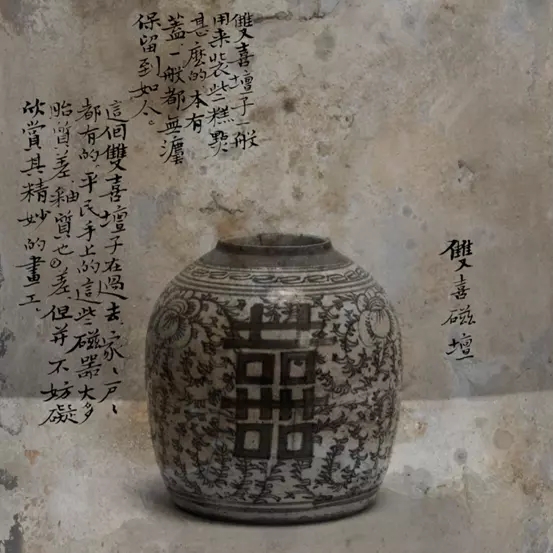 雙喜磁壇
雙喜壇子一般
用来裝些糕點
甚麽的本有
蓋一般都無灋
保留到如今。
這個雙喜壇子在過去家、戶、
都有的平民手上的這些磁器大多
胎質差釉質也差但并不妨礙
欣賞其精妙的畫工
囍